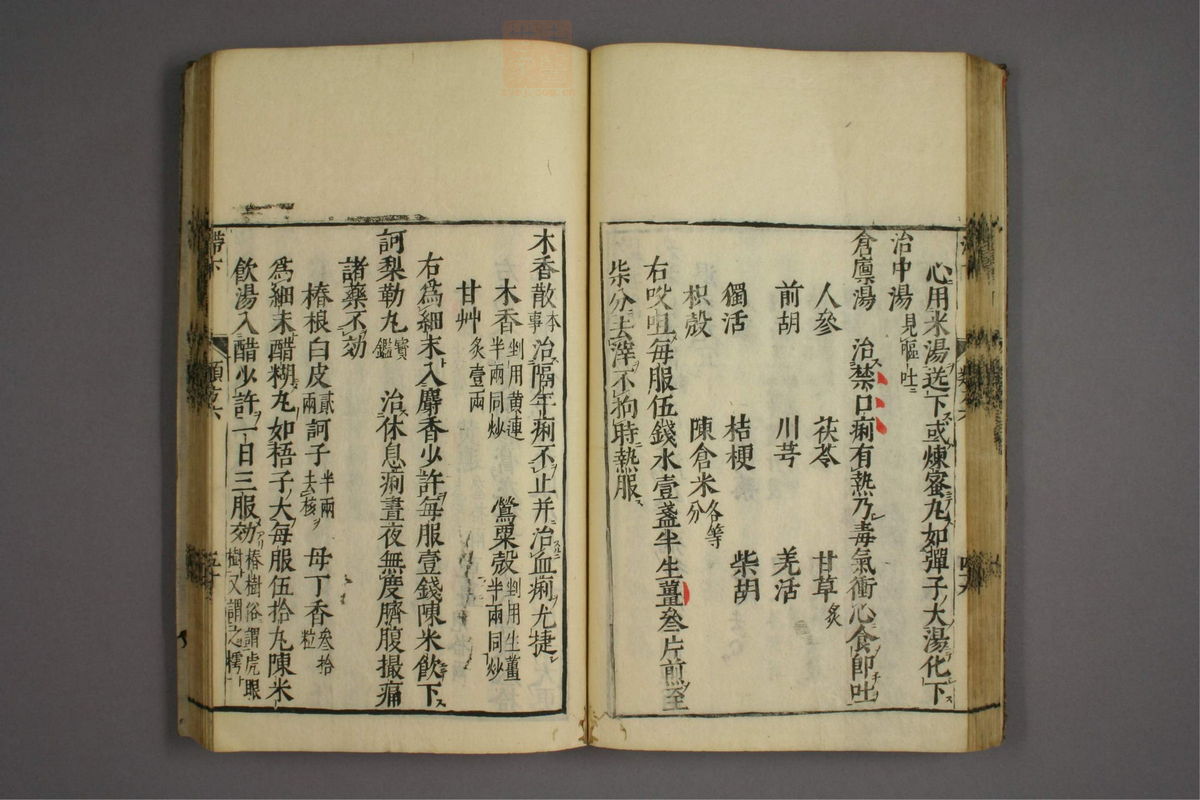 心用米湯送下或煉蜜丸如彈子大湯化下
治中湯見嘔吐
倉廪湯 治禁口痢有熱乃毒氣衝心食即吐
人參 茯苓 甘草炙
前胡 川芎 羌活
獨活 桔梗 柴胡
枳殼 陳倉米各等分
右㕮咀每服伍錢水壹盞半生薑叄片煎至
柒分去滓不拘時熱服
木香散本事 治隔年痢不止并治血痢尤捷
木香剉用黄連半兩同炒 鶯粟殼剉用生薑半兩同炒
甘艸炙壹兩
右為細末入麝香少許每服壹錢陳米飲下
訶梨勒丸寳鑑 治休息痢晝夜無度臍腹撮痛
諸藥不效
椿根白皮貳兩 訶子半兩去核 母丁香叄拾粒
為細末醋糊丸如梧子大每服伍拾丸陳米
飲湯入醋少許一日三服效椿樹俗謂虎眼樹又謂之樗